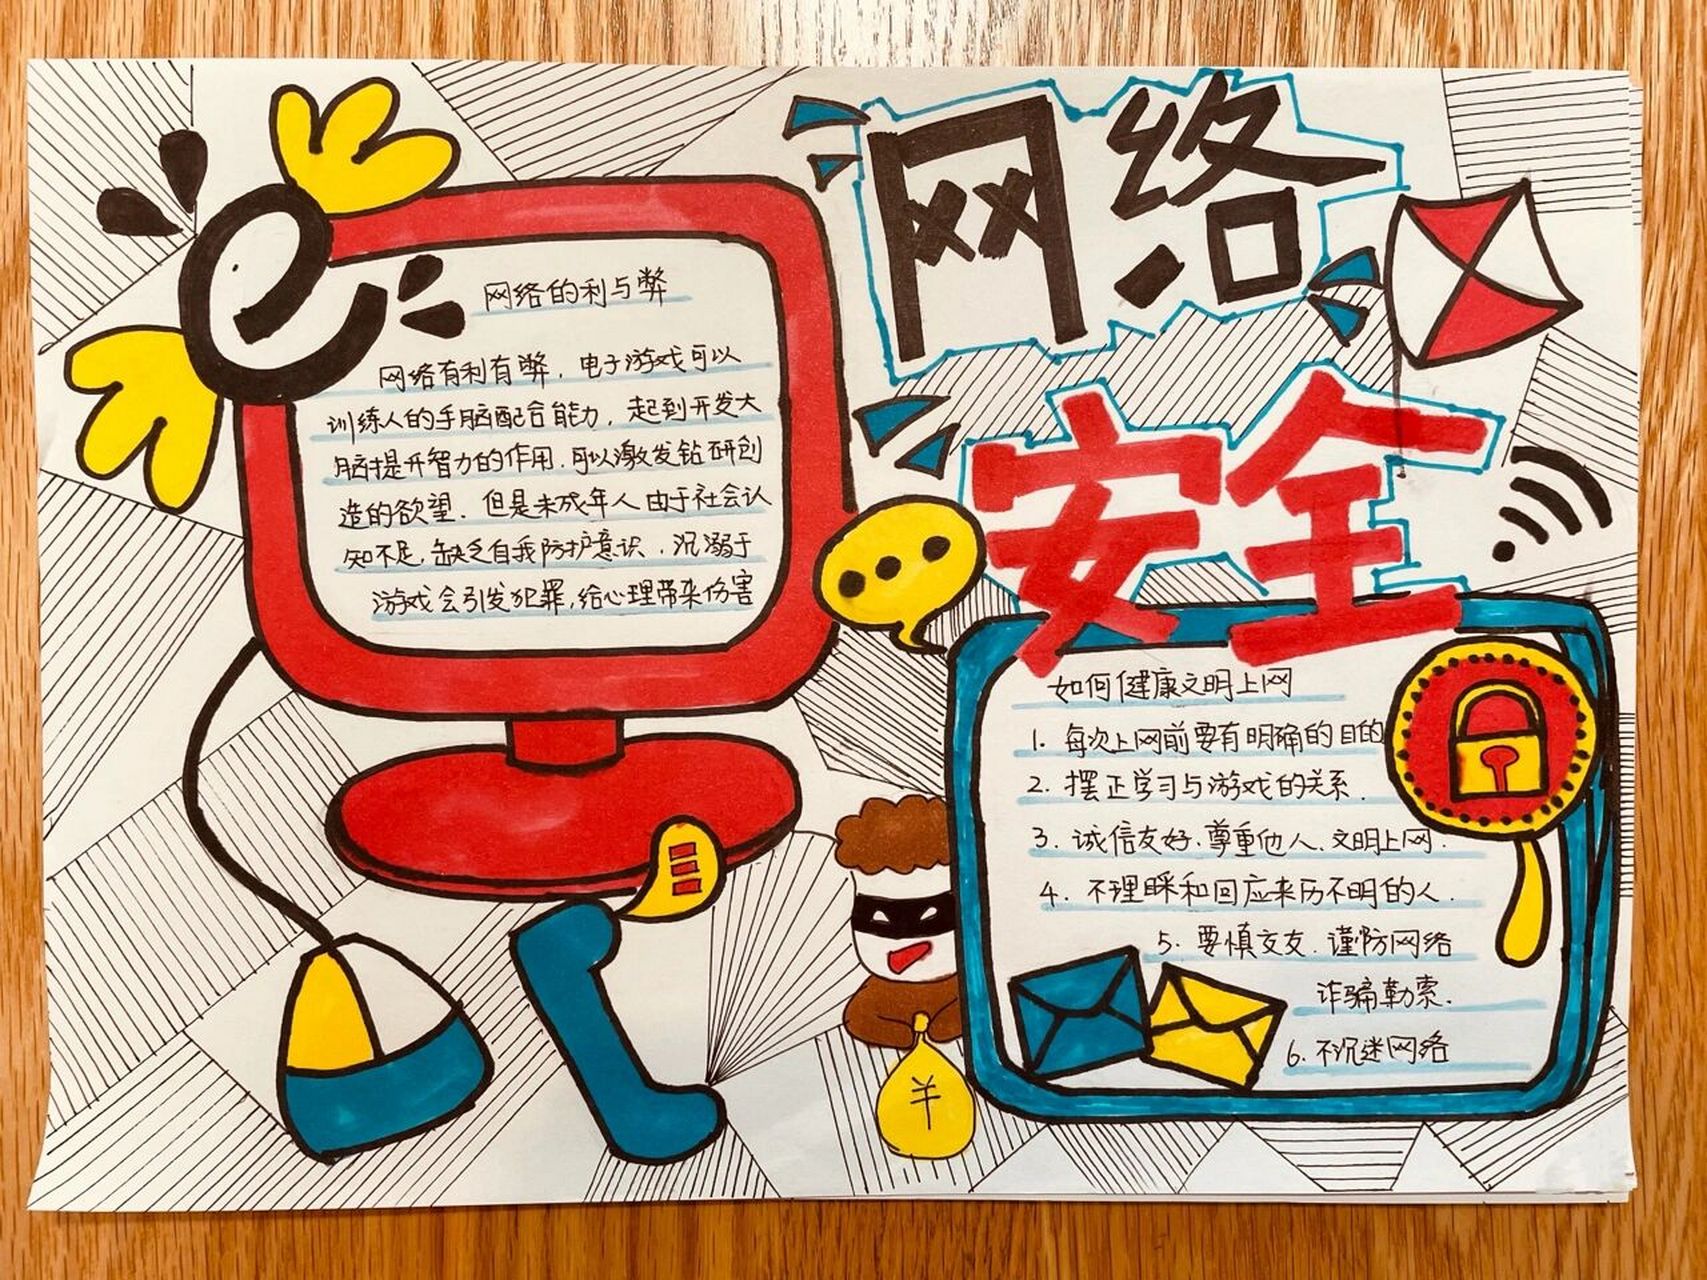 网络
安全
e
网络的利与弊
网络有利有弊，电子游戏可以
训练人的手脑配合能力，起到开发大
脑提开智力的作用，可以激发钻研创
造的欲望．但是未成年人由于社会认
知不足，缺乏自我防护意识，沉溺于
游戏会引发犯罪，给心理带来伤害
如何健康文明上网
1. 每次上网前要有明确的目的
2. 摆正学习与游戏的关系．
3. 诚信友好．尊重他人、文明上网．
4. 不理睬和回应来历不明的人．
5. 要慎交友．谨防网络
诈骗勒索．
6. 不沉迷网络
羊